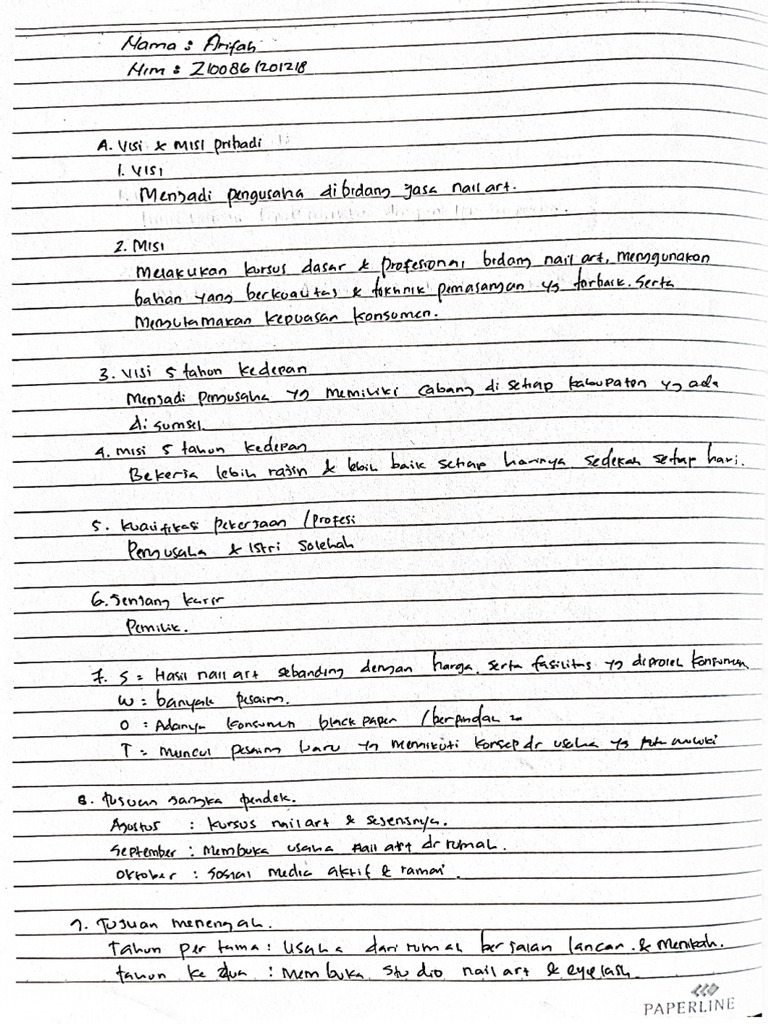 Nama : Arifah
Nim : 210086/201218
A. Visi & Misi pribadi
1. Visi
Menjadi pengusaha dibidang jasa nail art.
2. Misi
Melakukan kursus dasar & profesional bidang nail art, menggunakan
bahan yang berkualitas & tekhnik pemasangan yg terbaik. Serta
Mengutamakan kepuasan konsumen.
3. Visi 5 tahun kedepan
Menjadi pengusaha yg memiliki cabang di setiap kabupaten yg ada
di sumsel
4. misi 5 tahun kedepan
Bekerja lebih rajin & lebih baik setiap harinya sedekah setiap hari.
5. Kualifikasi pekerjaan / profesi
Pengusaha & istri solehah
6. Jenjang karir
Pemilik.
7. S = Hasil nail art sebanding dengan harga, serta fasilitas yg diperoleh konsumen
W = banyak pesaing.
O : Adanya konsumen black paper / berpindah 2
T = muncul pesaing baru yg mengikuti konsep dr usaha yg
8. tujuan jangka pendek.
Agustus : kursus nail art & sejenisnya.
September : Membuka usaha nail art dr rumah.
Oktober : Sosial media aktif & ramai.
9. Tujuan menengah.
Tahun pertama : Usaha dari rumah berjalan lancar. & Menikah.
tahun ke dua : Membuka studio nail art & eyelash.
PAPERLINE